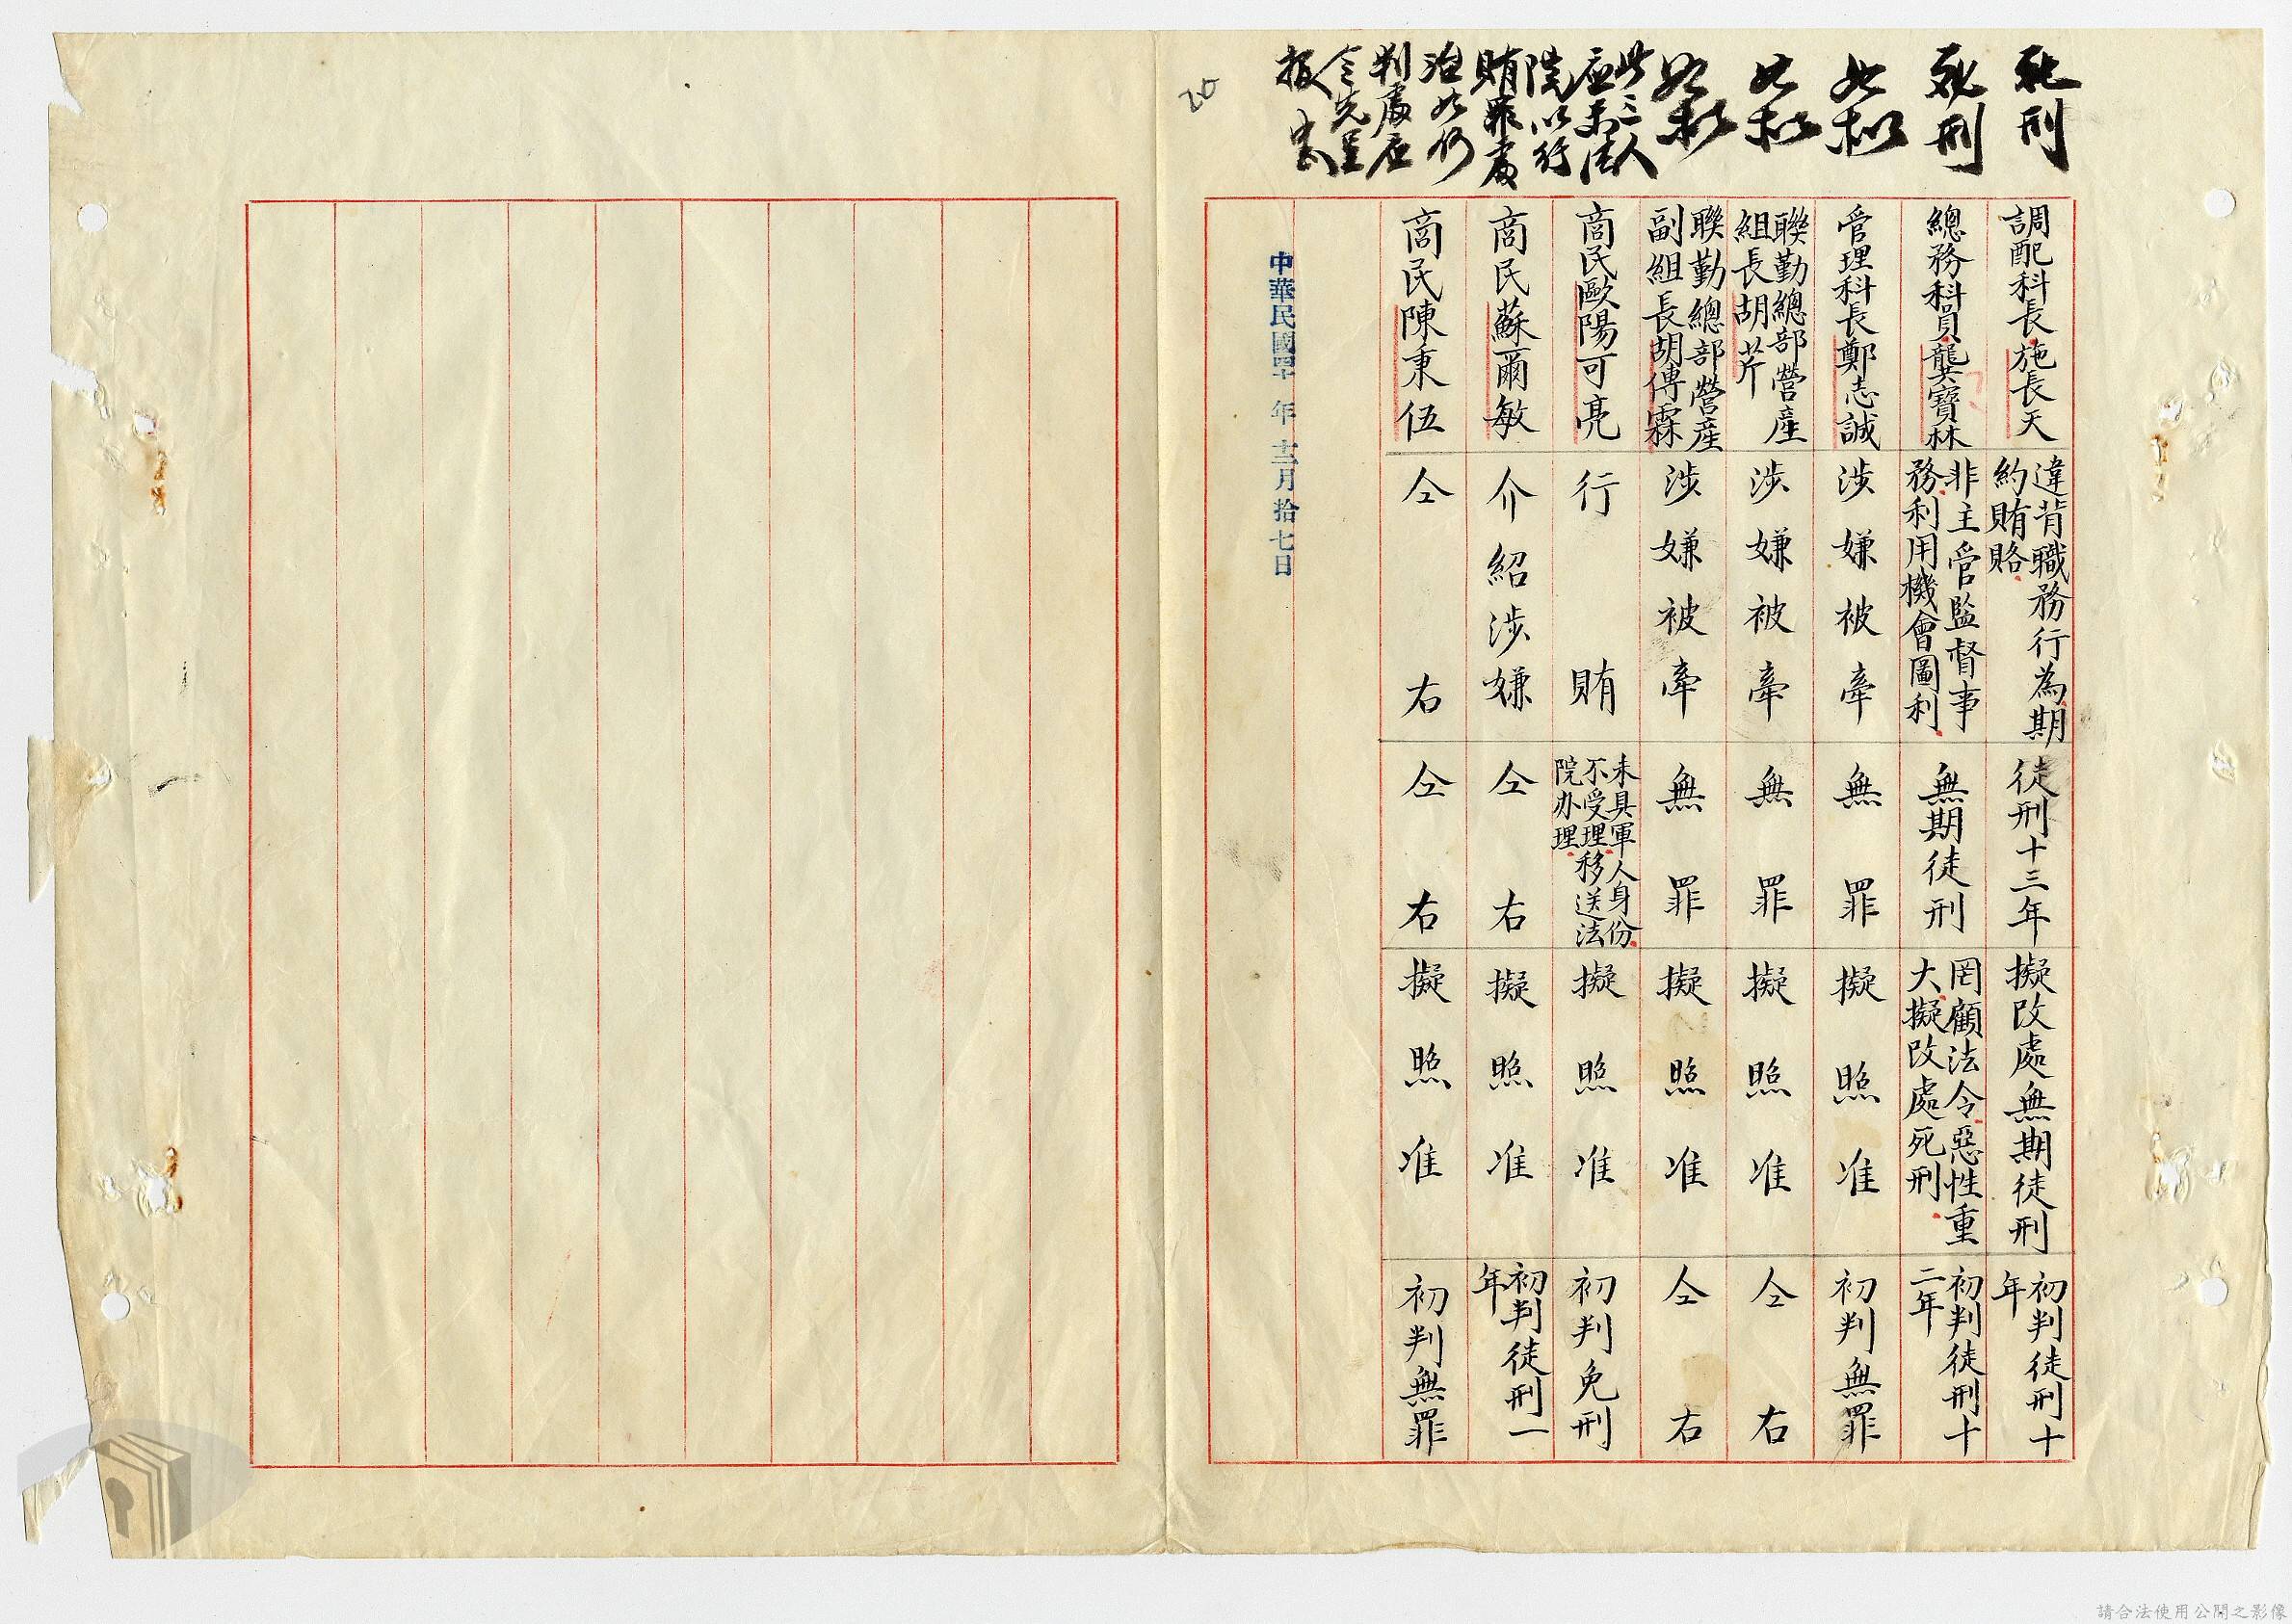 死刑
調配科長施長天
違背職務行為期
約賄賂
徒刑十三年
擬改處無期徒刑
初判徒刑十
年
死刑
總務科員龔寶林
非主管監督事
務利用機會圖利
無期徒刑
罔顧法令惡性重
大擬改處死刑
初判徒刑十
二年
如擬
管理科長鄭志誠
涉嫌被牽
無罪
擬照准
初判無罪
如擬
聯勤總部營產
組長胡芹
涉嫌被牽
無罪
擬照准
仝右
如擬
聯勤總部營產
副組長胡傳霖
涉嫌被牽
無罪
擬照准
仝右
此三人
應告法
院以行
賄罪處
治如何
判處應
令先呈
報
商民歐陽可亮
行賄
未具軍人身份
不受理移送法
院办理
擬照准
初判免刑
商民蘇爾敏
介紹涉嫌
仝右
擬照准
初判徒刑一
年
商民陳秉伍
仝右
仝右
擬照准
初判無罪
中華民國四十年十二月拾七日
請合法使用公開之影像